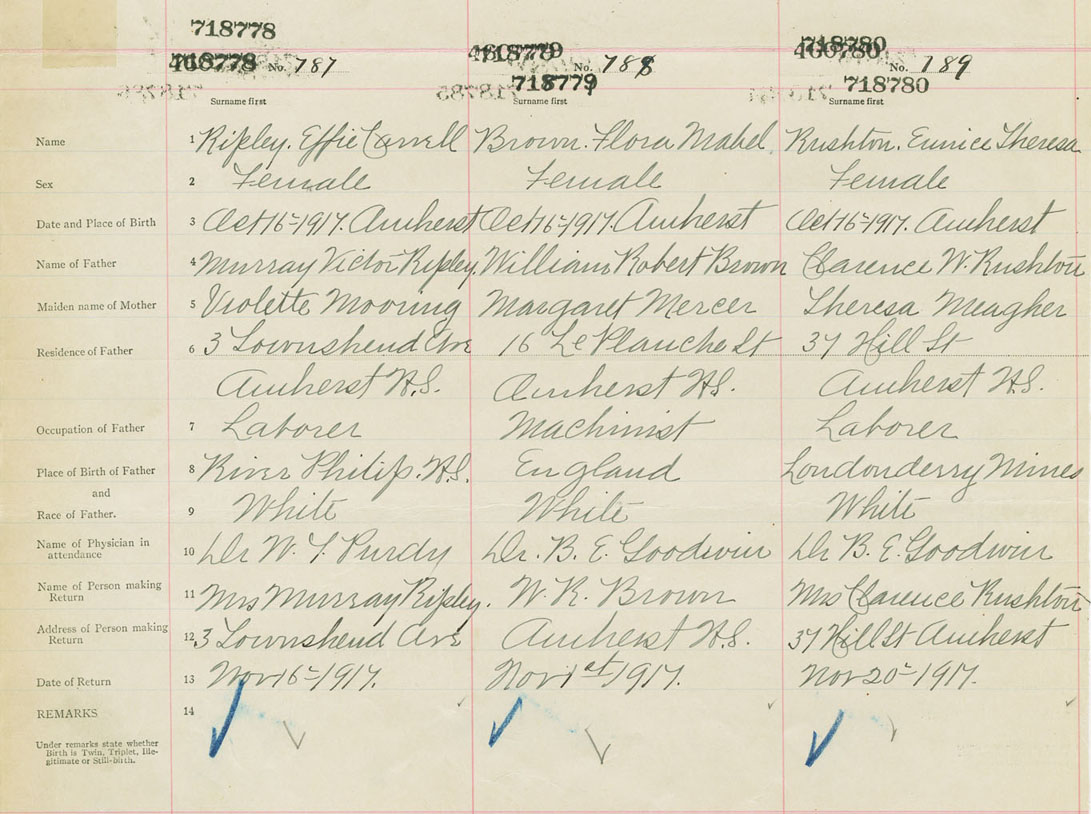 718778
718778 No. 787 718779 No. 788 718780 No. 789
718779 718780
Surname first Surname first Surname first
Name 1 Ripley. Effie Carrell Brown. Flora Mabel. Rushton. Eunice Theresa
Sex 2 Female Female Female
Date and Place of Birth 3 Oct 16-1917. Amherst Oct 16-1917. Amherst Oct 16-1917. Amherst
Name of Father 4 Murray Victor Ripley. William Robert Brown Clarence W. Rushton
Maiden name of Mother 5 Violette Mooring Margaret Mercer Theresa Meagher
Residence of Father 6 3 Townshend Ave 16 LePlanche St 37 Hill St
Amherst N.S. Amherst N.S. Amherst N.S.
Occupation of Father 7 Laborer Machinist Laborer
Place of Birth of Father 8 River Philip. N.S. England Londonderry Mines
and
Race of Father. 9 White White White
Name of Physician in
attendance 10 Dr W. T. Purdy Dr. B. E. Goodwin Dr B. E. Goodwin
Name of Person making
Return 11 Mrs Murray Ripley. W. R. Brown Mrs Clarence Rushton
Address of Person making
Return 12 3 Townshend Ave Amherst N.S. 37 Hill St Amherst
Date of Return 13 Nov 16-1917. Nov 1st 1917. Nov 20-1917.
REMARKS 14
Under remarks state whether
Birth is Twin, Triplet, Ille-
gitimate or Still-birth.